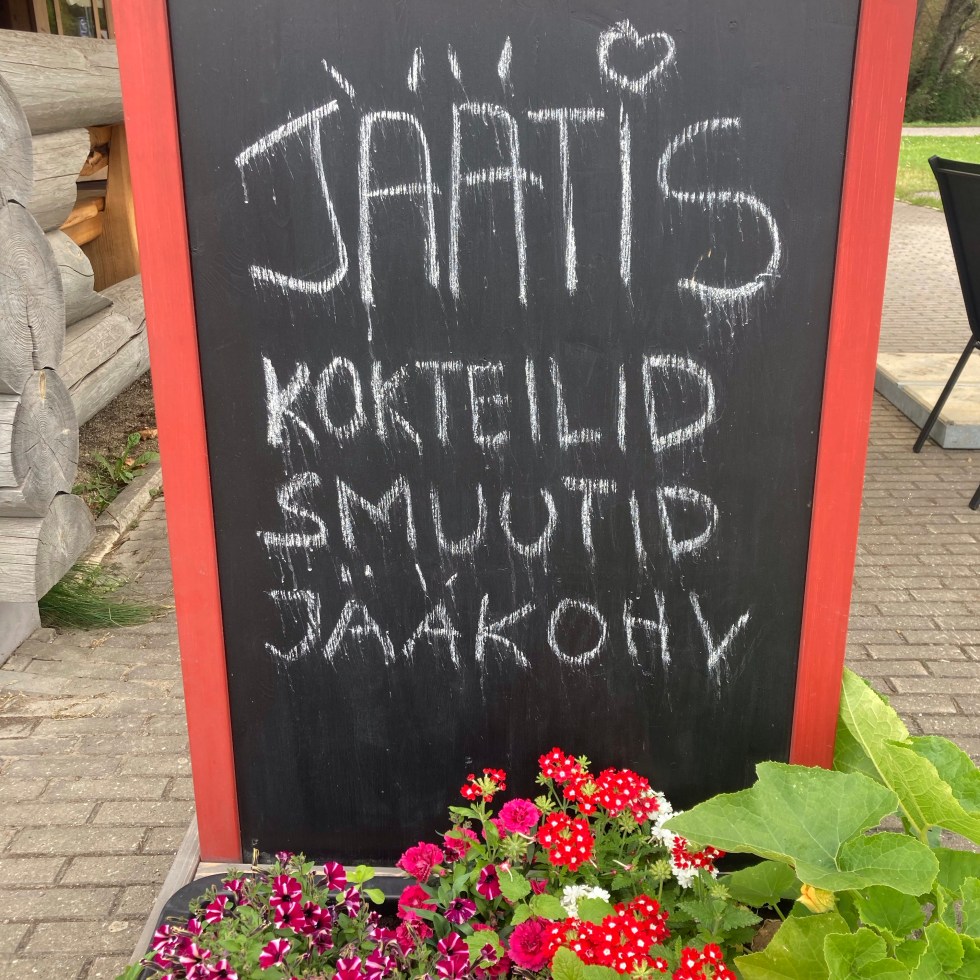 JÄÄTIS
KOKTEILID
SMUUTID
JÄÄKOHV